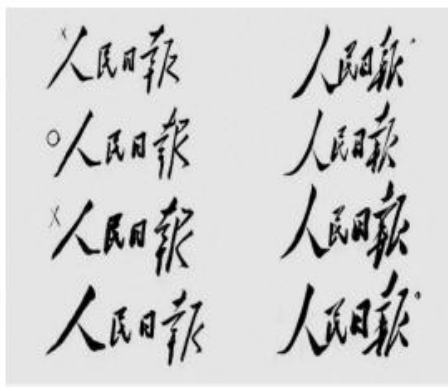 ×人民日報 人民日報
○人民日報 人民日報
×人民日報 人民日報
人民日報 人民日報